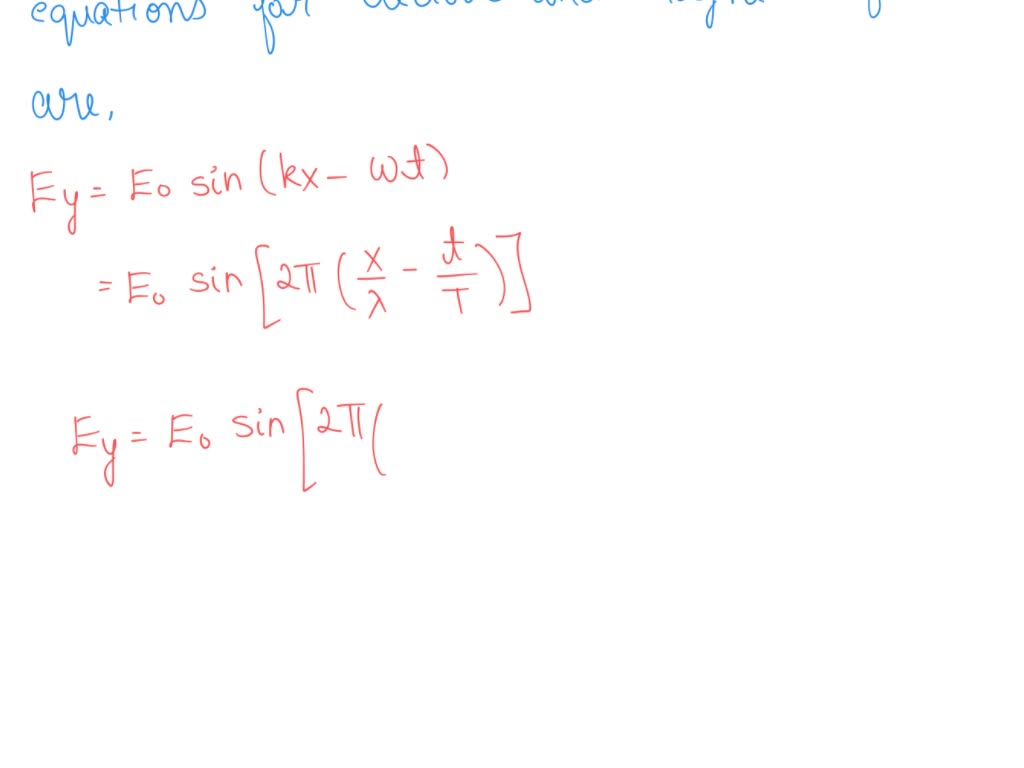 equations for
are,
Ey = E₀ sin (kx - ωt)
= E₀ sin [2π (x/λ - t/T)]
Ey = E₀ sin [2π (